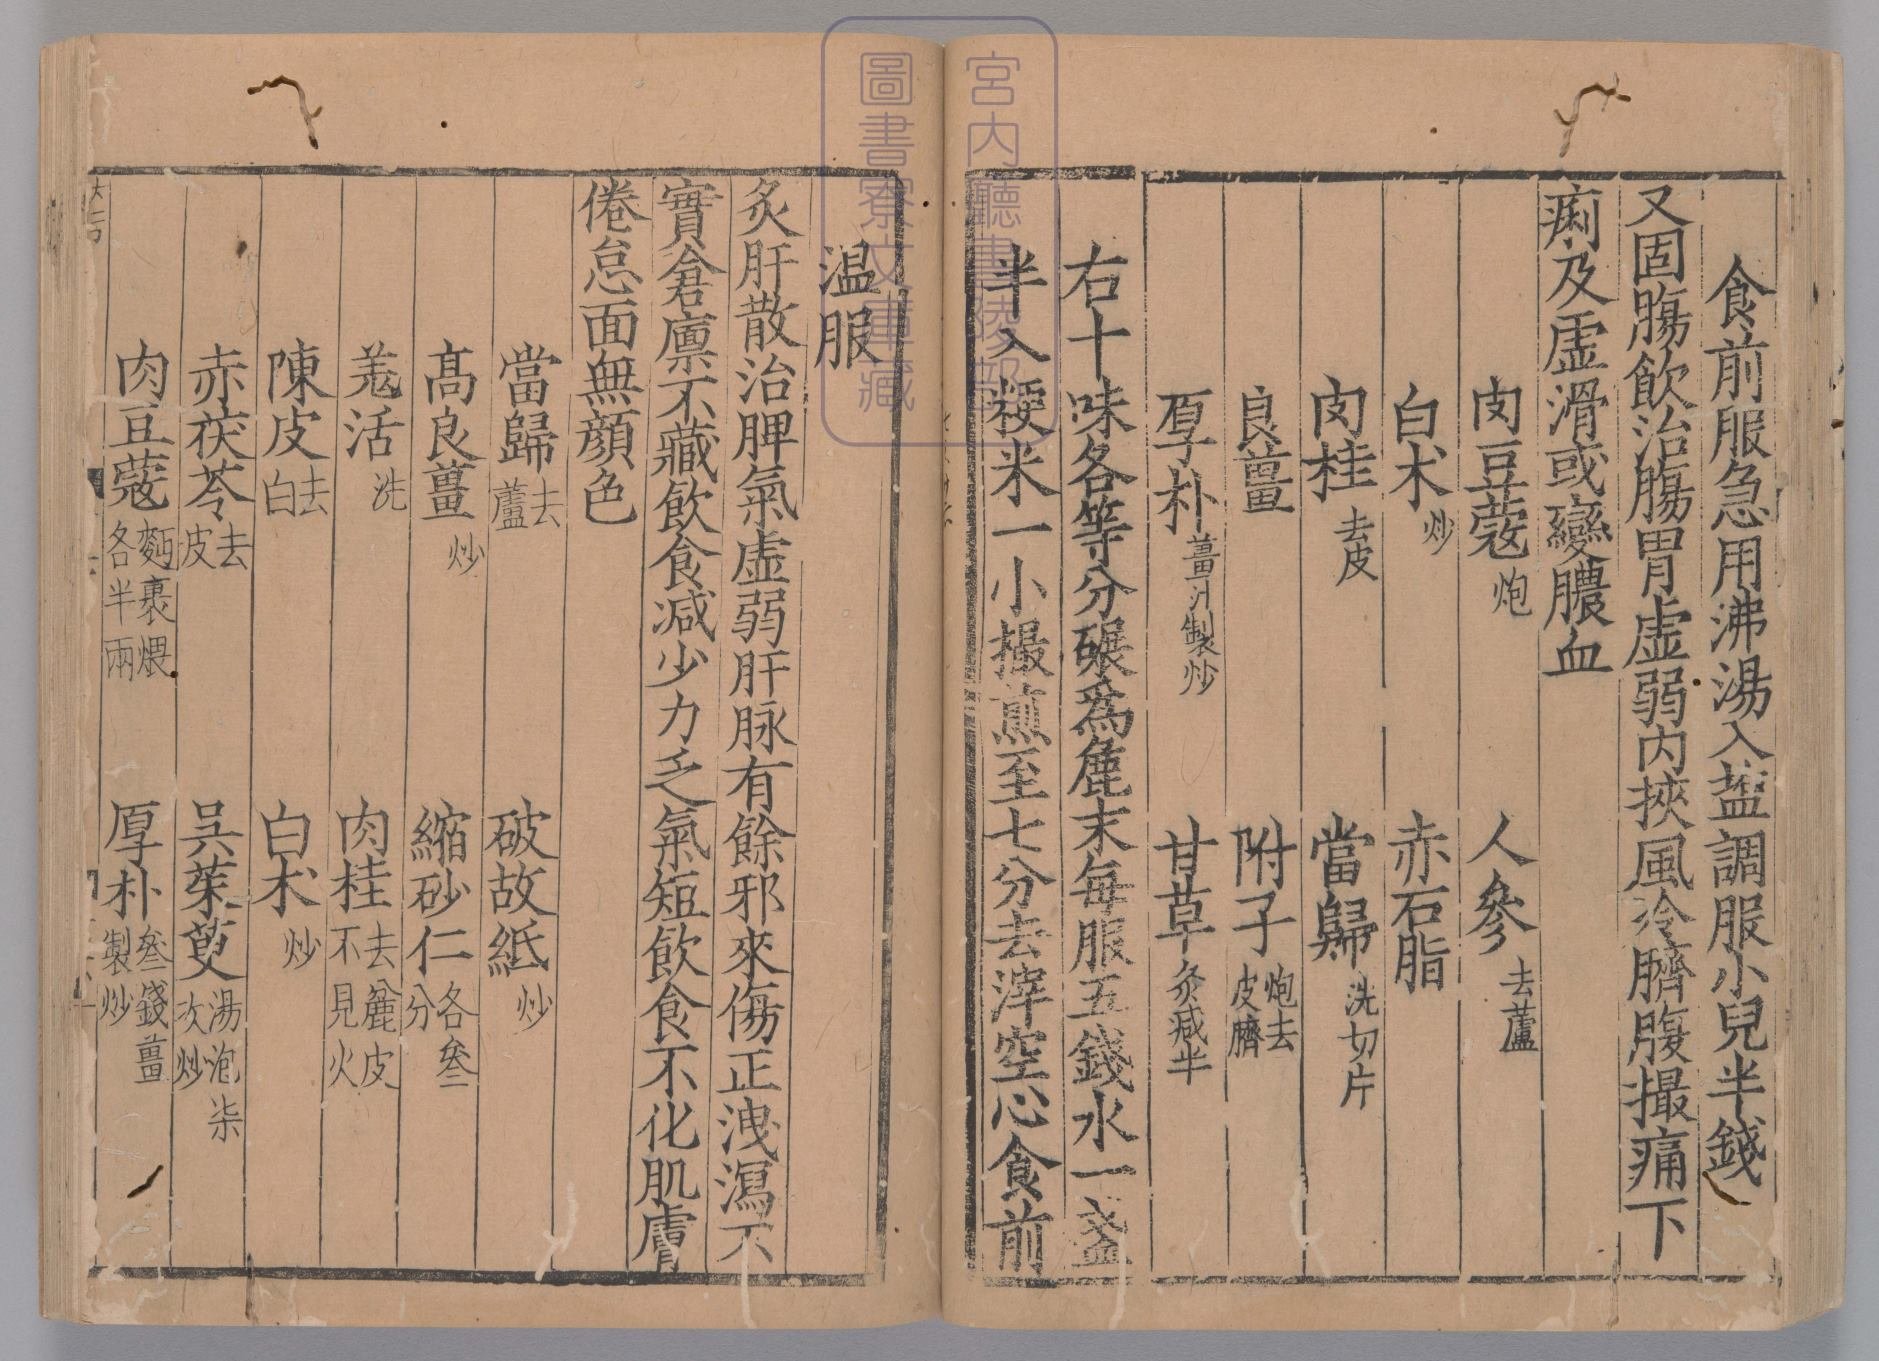 食前服急用沸湯入塩調服小兒半錢
又固腸飲治腸胃虛弱内挾風冷臍腹撮痛下
痢及虛滑或變膿血
肉豆蔻炮 人參去蘆
白朮炒 赤石脂
肉桂去皮 當歸洗切片
良薑 附子炮去皮臍
厚朴薑汁製炒 甘草炙减半
右十味各等分碾爲麄末每服五錢水一盞
半入粳米一小撮煎至七分去滓空心食前
温服
炙肝散治脾氣虛弱肝脉有餘邪來傷正洩瀉不
實倉廪不藏飲食减少力乏氣短飲食不化肌膚
倦怠面無顔色
當歸去蘆 破故紙炒
髙良薑炒 縮砂仁各叁分
羗活洗 肉桂去麄皮不見火
陳皮去白 白朮炒
赤茯苓去皮 吳茱萸湯泡柒次炒
肉豆蔻麪裹煨各半兩 厚朴叁錢薑製炒
宮内廳書陵部
圖書寮文庫藏